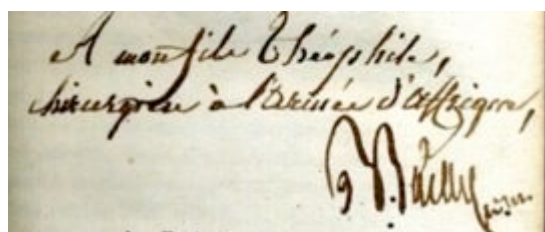 A mon fils Théophile,
chirurgien à l'armée d'affrique,
Bailly